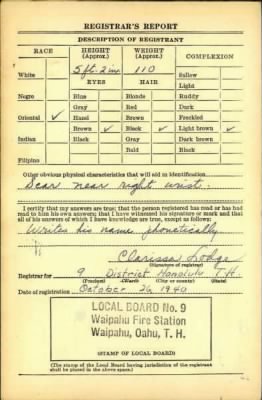 REGISTRAR'S REPORT
DESCRIPTION OF REGISTRANT
RACE HEIGHT (Approx.) WEIGHT (Approx.) COMPLEXION
White 5 ft. 2 in. 110 Sallow
EYES HAIR Light
Negro Blue Blonde Ruddy
Gray Red Dark
Oriental ✓ Hazel Brown Freckled
Brown ✓ Black ✓ Light brown ✓
Indian Black Gray Dark brown
Bald Black
Filipino
Other obvious physical characteristics that will aid in identification
Scar near right wrist.
I certify that my answers are true; that the person registered has read or has had
read to him his own answers; that I have witnessed his signature or mark and that
all of his answers of which I have knowledge are true, except as follows:
Writes his name phonetically
Clarissa Lodge
(Signature of registrar)
Registrar for 9 District Honolulu T.H.
(Precinct) (Ward) (City or county) (State)
Date of registration October 26, 1940
LOCAL BOARD No. 9
Waipahu Fire Station
Waipahu, Oahu, T. H.
(STAMP OF LOCAL BOARD)
(The stamp of the Local Board having jurisdiction of the registrant
shall be placed in the above space.)